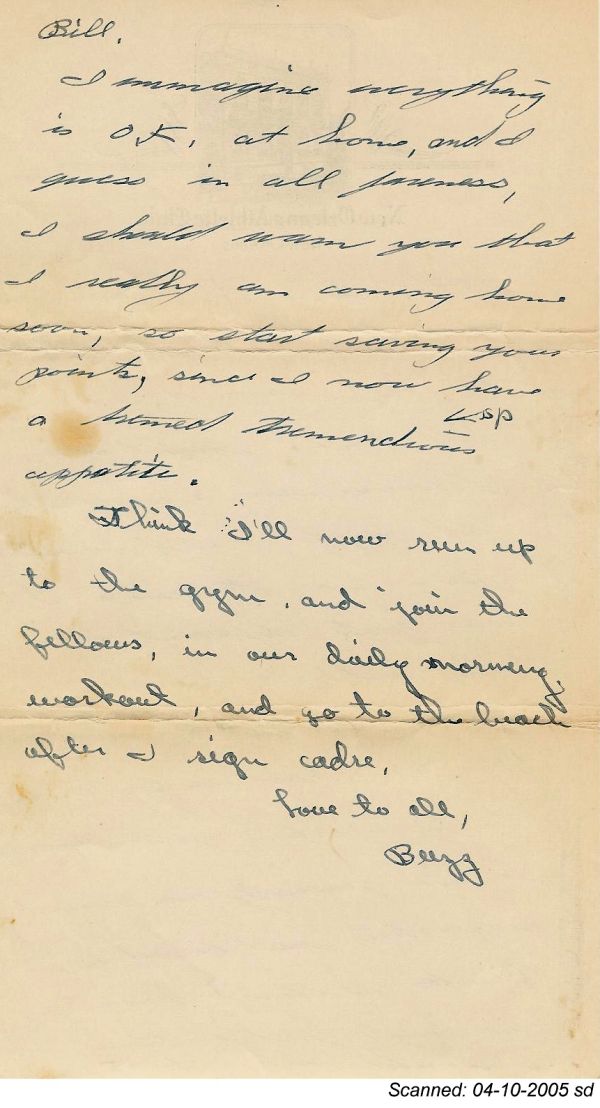 Bill.
I immagine everything
is O.K. at home, and I
guess in all fairness,
I should warn you that
I really am coming home
soon, so start saving your
points, since I now have
a tremed tremendious sp
appatite.
Think I'll now run up
to the gym, and join the
fellows, in our daily morning
workout, and go to the beach
after I sign cadre,
Love to all,
Buzz
Scanned: 04-10-2005 sd